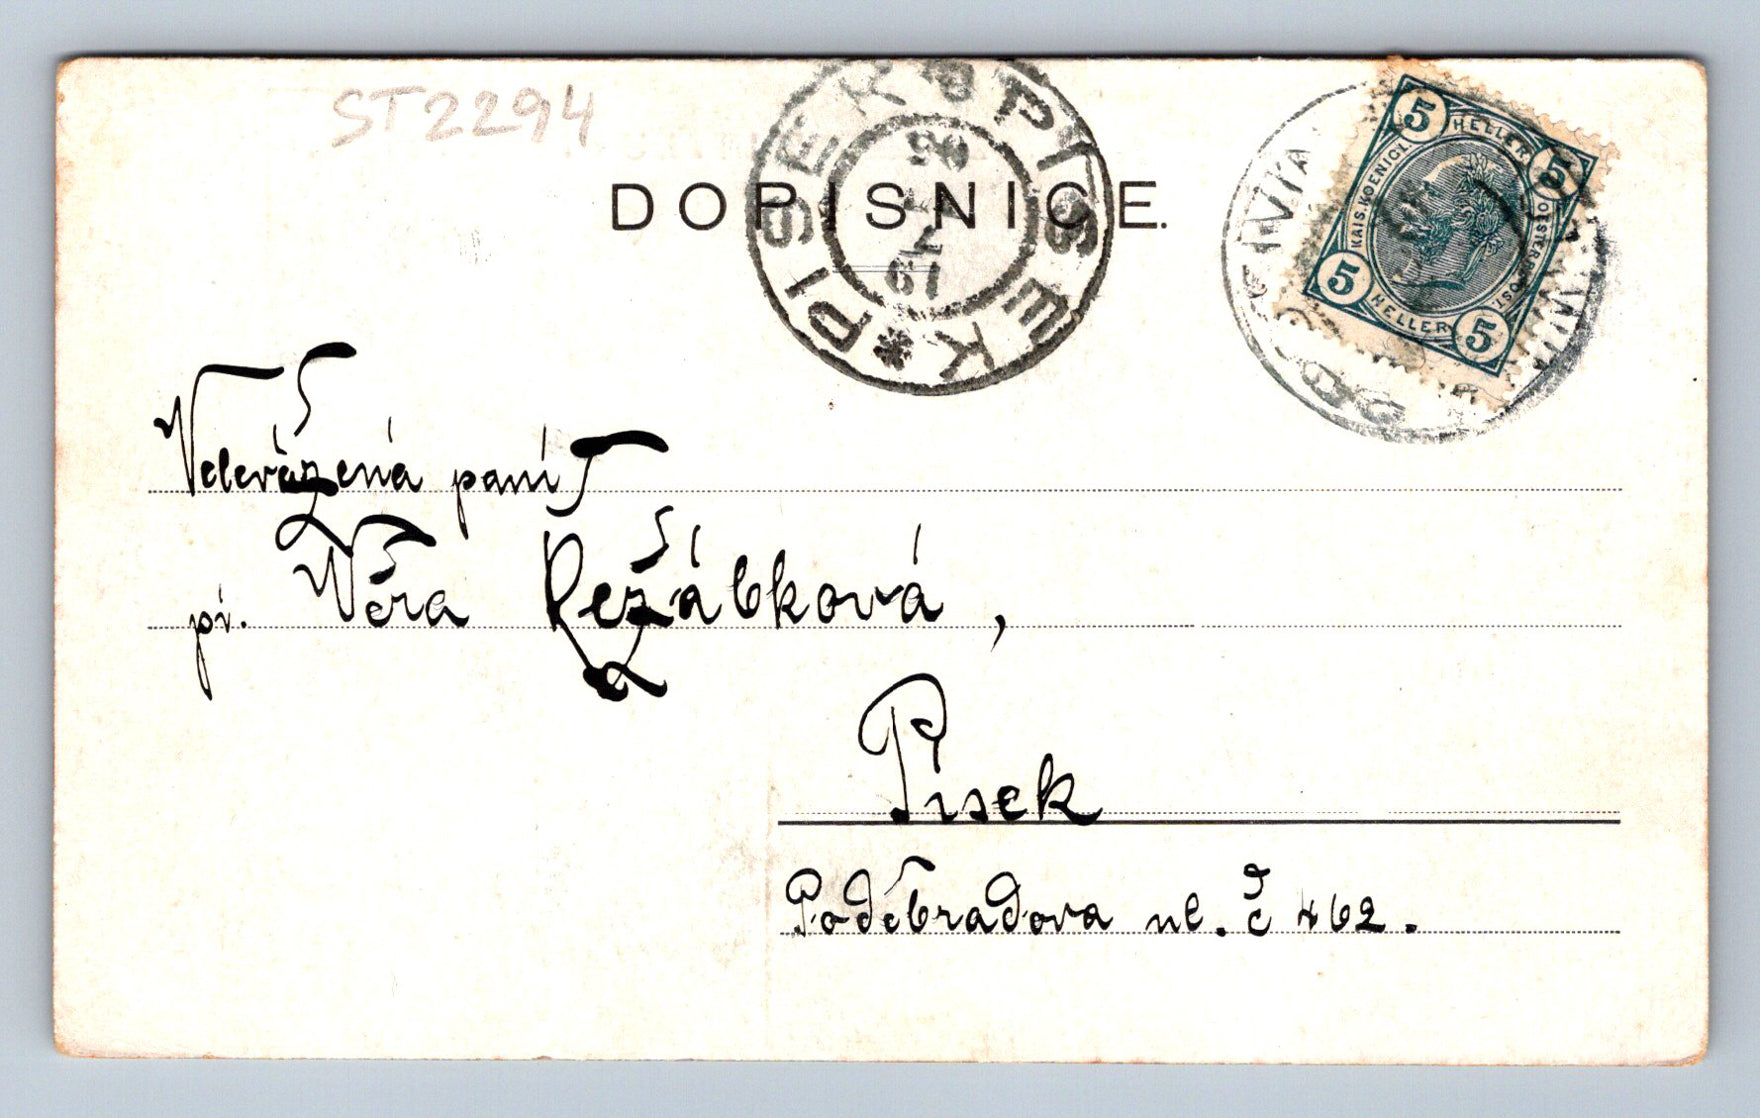 ST2294
DOPISNICE.
PISEK * PISEK
5 HELLER 5
KAIS. KOENIGL. OESTERR. POST.
5 HELLER 5
Velevážená paní
pí. Věra Řežábková,
Písek
Poděbradova ul. č 462.